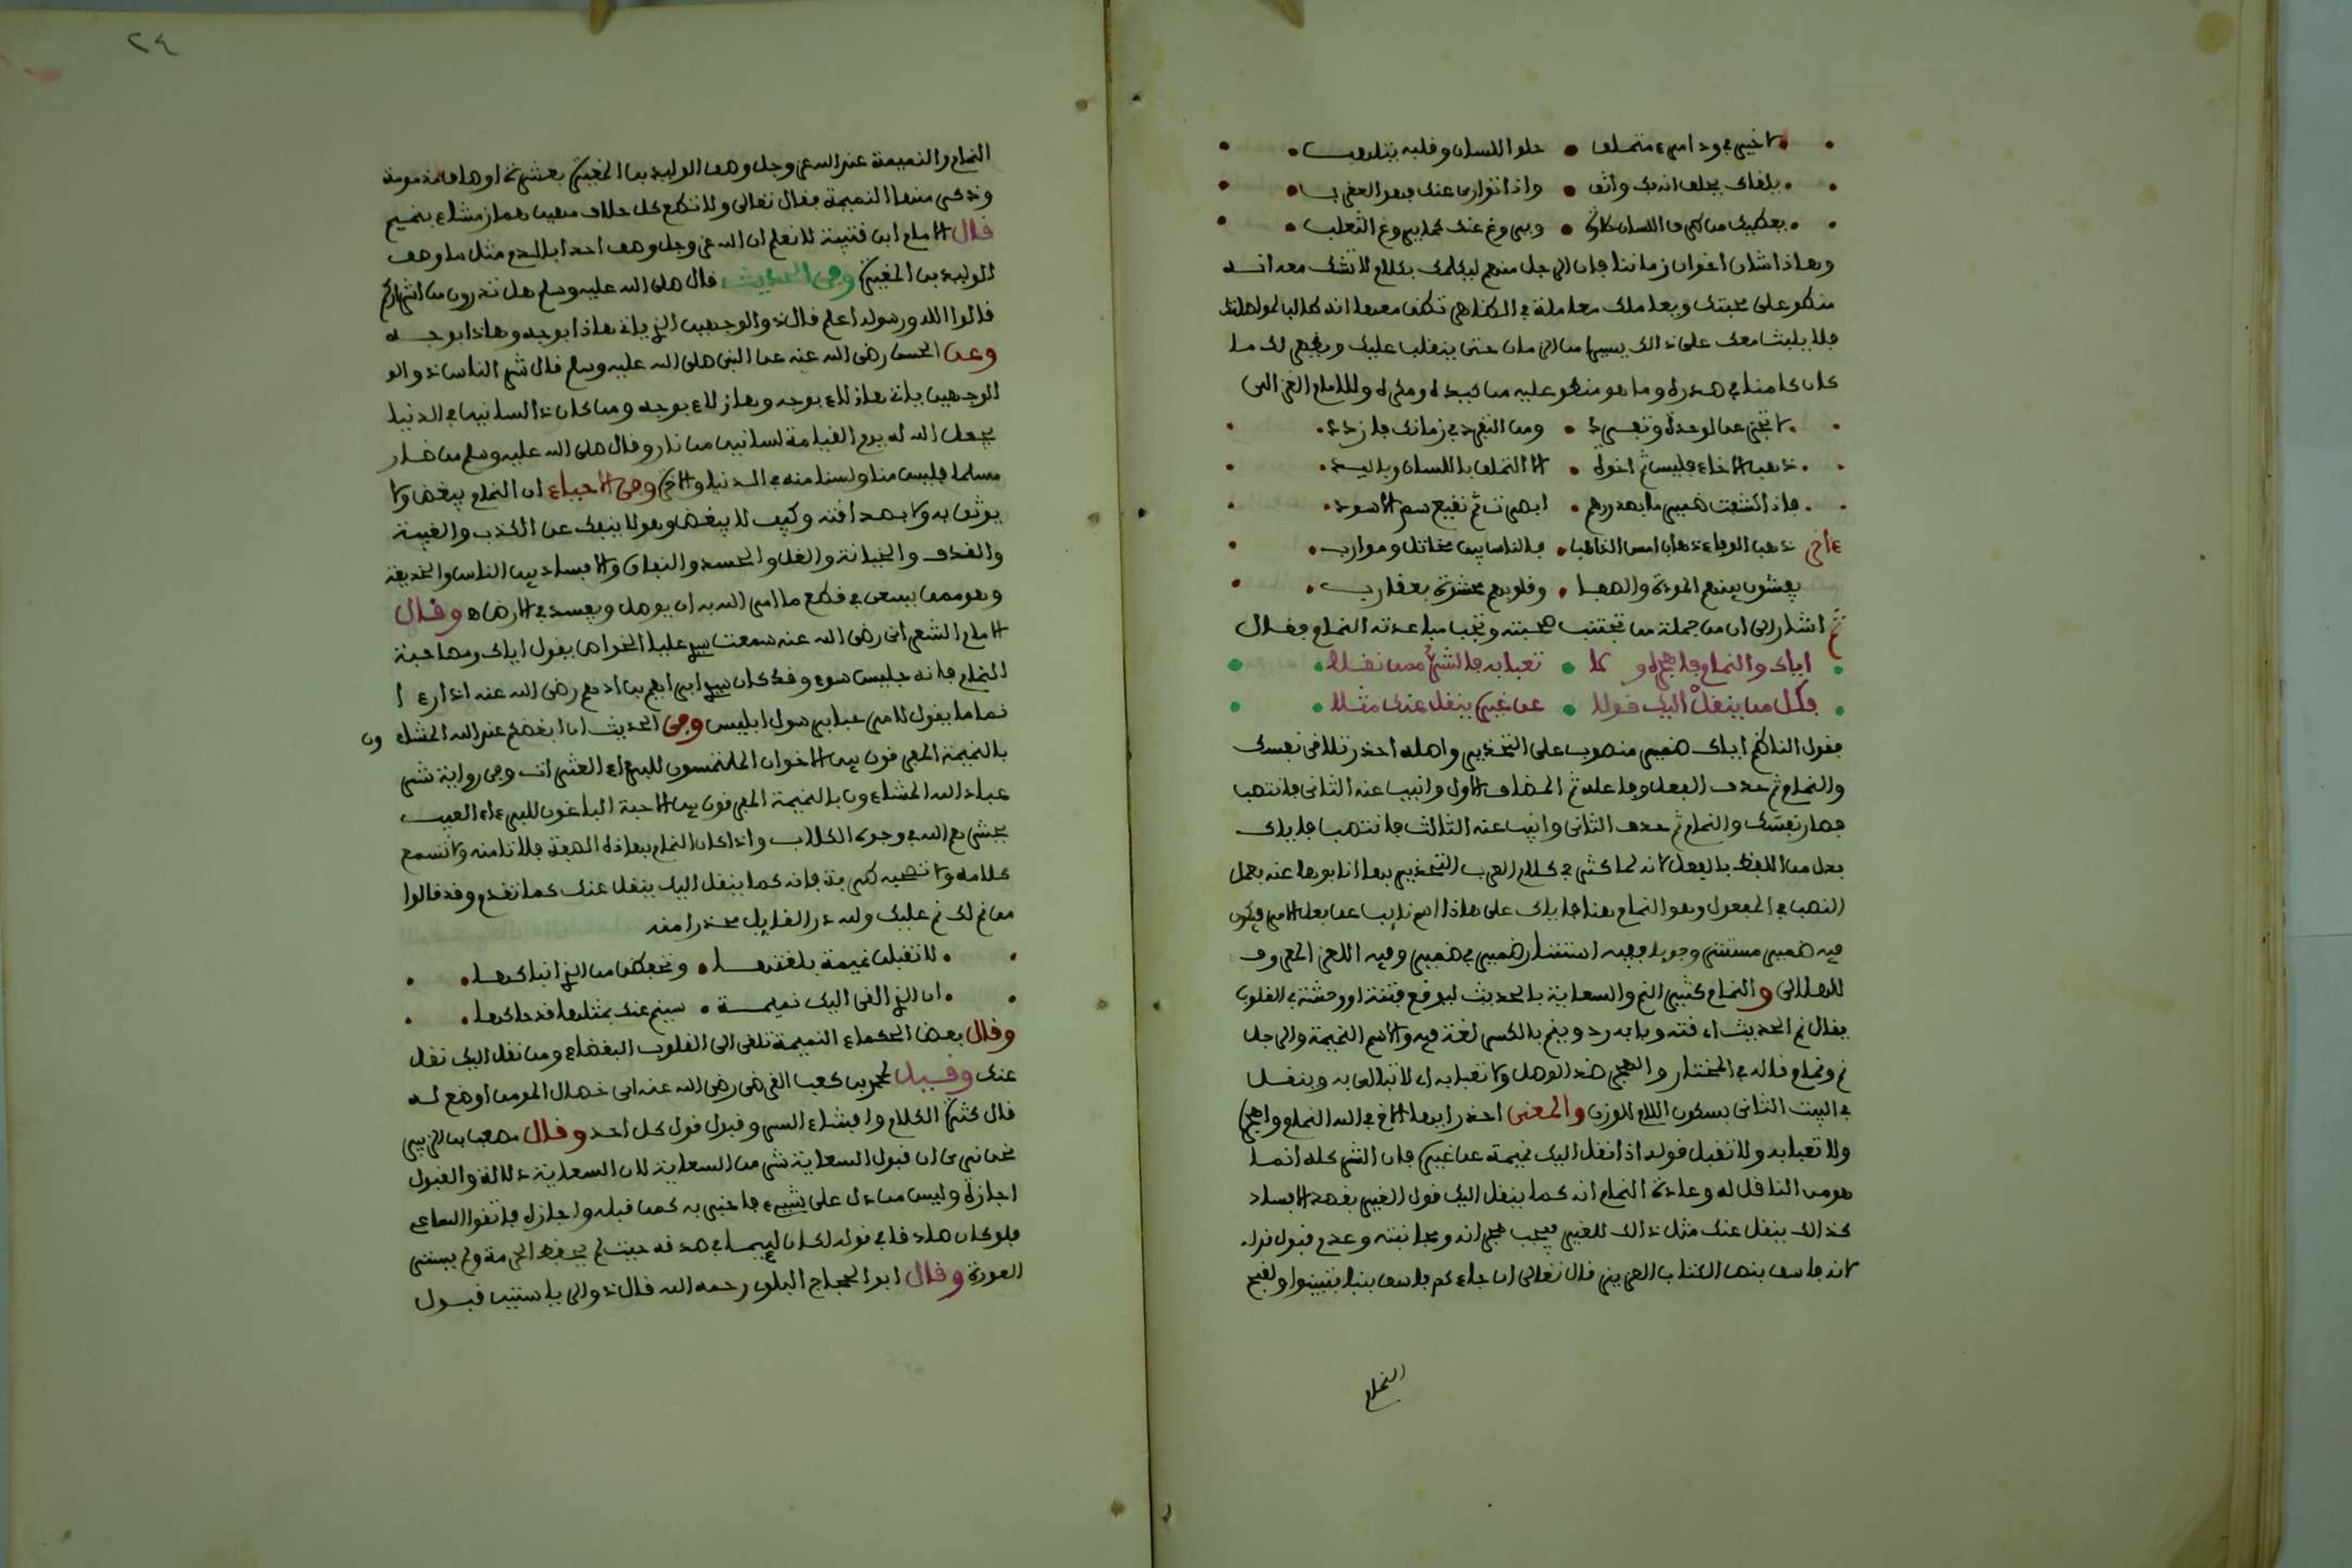 لا خير في ود امرء متملق • حلو اللسان وقلبه يتلهب
يلقاك يحلف انه بك واثق • واذا توارى عنك فهو العقرب
يعطيك من طرف اللسان حلاوة • ويروغ عنك كما يروغ الثعلب
وهاذا شان اخوان زماننا فان الرجل منهم ليكلمك بكلام لا تشك معه انه
منطو على محبتك ويعاملك معاملة في الظاهر تظن معها انه طالبا
فلا يلبث معك على ذالك يسيرا من الزمان حتى ينقلب عليك ويظهر لك ما
كان كامنا في صدره وما هو منطو عليه من كيده ومكره وللامام الغزالي
لا تجزعن لوحدة وتفرد • ومن التفرد في زمانك فازدد
ذهب الاخاء فليس ثم اخوة • الا التملق باللسان وباليد
فاذا كشفت ضمير ما بصدورهم • ابصرت ثم نقيع سم الاسود
ءاخر ذهب الوفاء ذهاب امس الذاهب • فالناس بين مخاتل وموارب
يفشون بينهم المودة والصفا • وقلوبهم محشوة بعقارب
ثم اشار الى ان من جملة من تجتنب صحبته وتجب مباعدته النمام فقال
اياك والنمام فاهجره ولا • تعبا به فالشر ممن نقلا
فكل من ينقل اليك قولا • عن غيره ينقل عنك مثلا
فقول الناظم اياك ضمير منصوب على التحذير واصله احذر تلاقي نفسك
والنمام ثم حذف الفعل وفاعله ثم المضاف الاول وانيب عنه الثاني فانتصب
فصار نفسك والنمام ثم حذف الثاني وانيب عنه الثالث فانتصب فاياك
بدل من اللفظ بالفعل لانه لما كثر في كلام العرب التحذير بها انابوها عنه بعمل
النصب في المفعول وهو النمام هنا فاياك على هاذا اسم نايب عن فعل الامر فيكون
فيه ضمير مستتر وجوبا ففيه استتار ضمير في ضمير وفيه اللغز المعروف
للهلالي والنمام كثير النم والسعاية بالحديث ليوقع فتنة او وحشة في القلوب
يقال نم الحديث اي قته وبابه رد وينم بالكسر لغة فيه والاسم النميمة والرجل
نم ونمام قاله في المختار والهجر ضد الوصل ولا تعبا به اي لا تبالي به وينقل
في البيت الثاني بسكون اللام للوزن والمعنى احذر ايها الاخ في الله النمام واهجره
ولا تعبا به ولا تقبل قوله اذا نقل اليك نميمة عن غيره فان الشر كله انما
هو من الناقل له وعادة النمام انه كما ينقل اليك قول الغير بقصد الافساد
كذالك ينقل عنك مثل ذالك للغير فيجب هجرانه ومجانبته وعدم قبول قوله
لانه فاسق بنص الكتاب العزيز قال تعالى ان جاءكم فاسق بنبا فتبينوا ولقبح
النمام
٢٤
النمام والنميمة عند الله عز وجل وصف الوليد بن المغيرة بعشرة اوصاف مذمومة
وذكر منها النميمة فقال تعالى ولا تطع كل حلاف مهين هماز مشاء بنميم
قال الامام ابن قتيبة لا نعلم ان الله عز وجل وصف احدا بالذم مثل ما وصف
الوليد بن المغيرة وفي الحديث قال صلى الله عليه وسلم هل تدرون من اشراركم
قالوا الله ورسوله اعلم قال ذو الوجهين الذي ياتي هاذا بوجه وهاذا بوجه
وعن الحسن رضي الله عنه عن النبي صلى الله عليه وسلم قال شر الناس ذو الو
الوجهين ياتي هاذلاء بوجه وهاذلاء بوجه ومن كان ذا لسانين في الدنيا
يجعل الله له يوم القيامة لسانين من نار وقال صلى الله عليه وسلم من ضار
مسلما فليس منا ولسنا منه في الدنيا والاخرة وفي الاحياء ان النمام يبغض ولا
يوثق به ولا بصداقته وكيف لا يبغض وهو لا ينفك عن الكذب والغيبة
والغدر والخيانة والغل والحسد والنفاق والافساد بين الناس والخديعة
وهو ممن يسعى في قطع ما امر الله به ان يوصل ويفسد في الارض اه وقال
الامام الشعراني رضي الله عنه سمعت سيدي عليا الخواص يقول اياك ومصاحبة
النمام فانه جليس سوء وقد كان سيدي ابراهيم بن ادهم رضي الله عنه اذا رءا
نماما يقول للامير عبابي رسول ابليس وفي الحديث ان ابغضكم عند الله المشاءون
بالنميمة المفرقون بين الاخوان الملتمسون للبرءاء العثرات وفي رواية شر
عباد الله المشاءون بالنميمة المفرقون بين الاحبة الباغون للبرءاء العيب
يحشرهم الله في وجوه الكلاب واذا كان النمام بهاذه الصفة فلا تامنه ولا تسمع
كلامه ولا تصحبه طرفة فانه كما ينقل اليك ينقل عنك كما تقدم وقد قالوا
من نم لك نم عليك ولله در القايل محذرا منه
لا تقبلن نميمة بلغتها • وتحفظن من الذي انباكها
ان الذي القى اليك نميمة • سينم عنك بمثلها قد حاكها
وقال بعض الحكماء النميمة تلقي الى القلوب البغضاء ومن نقل اليك نقل
عنك وقيل لمحمد بن كعب القرظي رضي الله عنه اي خصال المومن اوضع له
قال كثرة الكلام وافشاء السر وقبول قول كل احد وقال مصعب بن الزبير
نحن نرى ان قبول السعاية شر من السعاية لان السعاية دلالة والقبول
اجازة وليس من دل على شيء فاخبر به كمن قبله واجازه فاتقوا الساعي
فلو كان صادقا في قوله لكان لييما في صدقه حيث لم يحفظ الحرمة ولم يستر
العورة وقال ابو الحجاج البلوي رحمه الله قال ذو الرياستين قبول